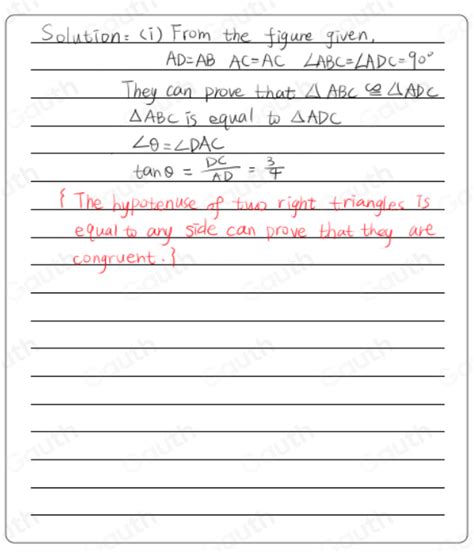 Solution: (i) From the figure given,
AD=AB AC=AC ∠ABC=∠ADC=90°
They can prove that △ABC ≌ △ADC
△ABC is equal to △ADC
∠θ=∠DAC
tanθ = DC/AD = 3/4
{ The hypotenuse of two right triangles is
equal to any side can prove that they are
congruent. }